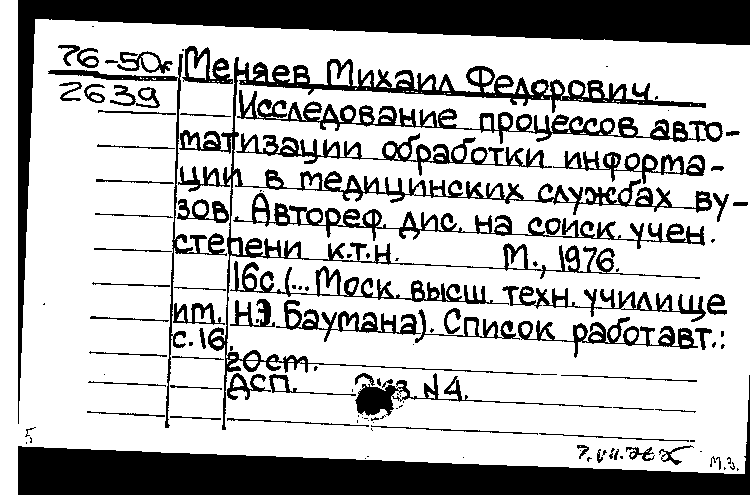 76-50к Меняев, Михаил Федорович.
2639 Исследование процессов авто-
матизации обработки информа-
ции в медицинских службах ву-
зов. Автореф. дис. на соиск. учен.
степени к.т.н. М., 1976.
16с. (... Моск. высш. техн. училище
им. Н.Э. Баумана). Список работ авт.:
с. 16.
20 ст.
ДСП. Экз. №4.
5 7.VII.76
М.З.